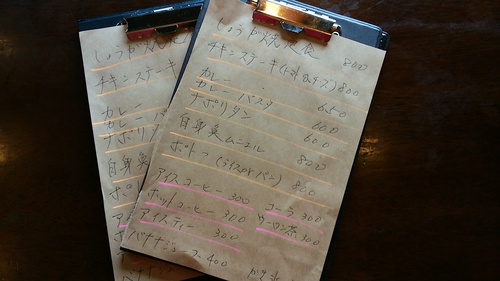 しょうが焼定食 800
チキンステーキ(トマト&チーズ) 800
カレー 650
カレーパスタ 600
ナポリタン 600
白身魚ムニエル 800
ポトフ (ライスorパン) 800
アイスコーヒー 300 コーラ 300
ホットコーヒー 300 ウーロン茶 300
アイスティー 300
バナナジュース 400
チキンステーキ
カレー
カレー
ナポリ
白身魚